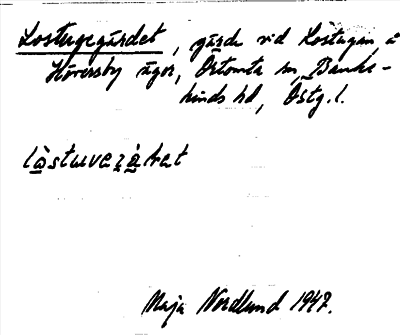 Lostugegärdet, gärde vid Lostugan å
Häversby ägor, Örtomta sn, Banke-
kinds hd, Östg. l.
Maja Nordlund 1947.